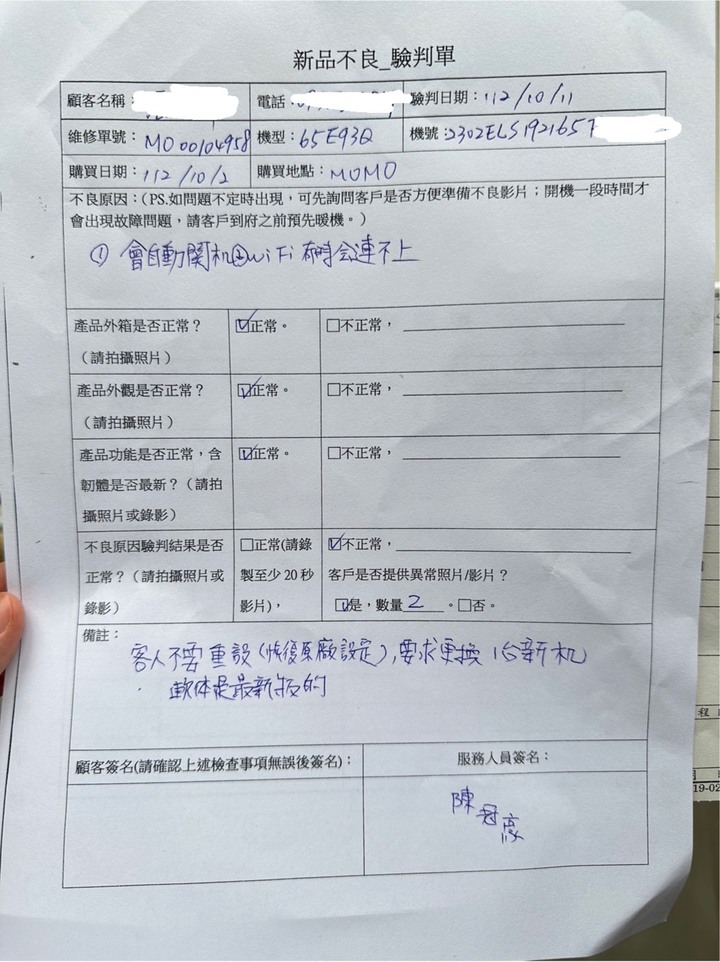 新品不良_驗判單
顧客名稱： 電話： 驗判日期：112/10/11
維修單號：MO00104958 機型：65E93Q 機號：2302ELS192165
購買日期：112/10/2 購買地點：MOMO
不良原因：(PS.如問題不定時出現，可先詢問客戶是否方便準備不良影片；開機一段時間才
會出現故障問題，請客戶到府之前預先暖機。)
① 會自動開机②wiFi 有時会連不上
產品外箱是否正常？ ☑正常。 □不正常，
（請拍攝照片）
產品外觀是否正常？ ☑正常。 □不正常，
（請拍攝照片）
產品功能是否正常，含 ☑正常。 □不正常，
韌體是否最新？（請拍
攝照片或錄影）
不良原因驗判結果是否 □正常(請錄 ☑不正常，
正常？（請拍攝照片或 製至少 20 秒 客戶是否提供異常照片/影片？
錄影） 影片)， ☑是，數量 2 。□否。
備註：
客人不要重設(恢復原廠設定),要求更換 1台新机
· 軟体是最新版的
顧客簽名(請確認上述檢查事項無誤後簽名)： 服務人員簽名：
陳冠豪
程
19-02